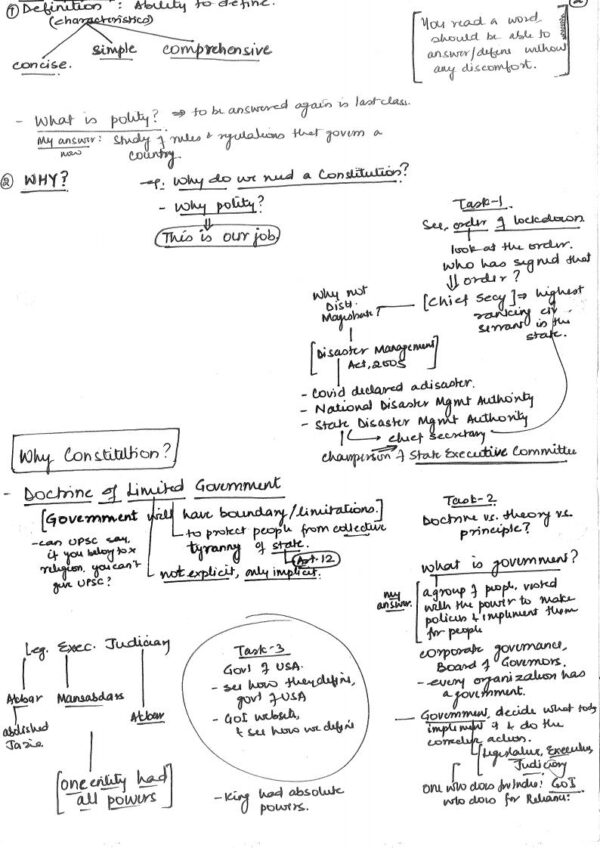 ① Definition : Ability to define.
(characteristics)
concise.
simple
comprehensive
[You read a word
should be able to
answer/define without
any discomfort.]
- What is polity? ⇒ to be answered again is last class.
My answer: Study of rules & regulations that govern a
now
country.
② WHY?
Why do we need a Constitution?
- Why polity?
This is our job.
Task-1.
See, order of lockdown
look at the order.
who has signed that
order?
[Chief Secy] ⇒ highest
ranking civ
servant in the
state.
Why not
Distt.
Magistrate?
[Disaster Management
Act, 2005]
- Covid declared a disaster.
- National Disaster Mgmt Authority
- State Disaster Mgmt Authority
→ Chief Secretary
chairperson of State Executive Committee
Why Constitution?
- Doctrine of Limited Government
[Government will have boundary/limitations.]
to protect people from collective
tyranny of state.
Art. 12
not explicit, only implicit.
- can UPSC say,
if you belong to x
religion, you can't
give UPSC?
Task-2
Doctrine vs. theory vs.
principle?
What is government?
my
answer.
a group of people, vested
with the power to make
policies & implement them
for people
corporate governance,
Board of Governors.
- every organization has
a government.
- Government, decide what to do,
implement it & do the
corrective action.
Legislature, Executive,
Judiciary
one who does for India: GOI
who does for Reliance:
Leg. Exec. Judiciary
Akbar
Mansabdars
Akbar
abolished
Jazia
[one entity had
all powers]
Task-3
Govt of USA.
- see how they define,
govt of USA
- GOI website,
& see how we define
- King had absolute
powers.